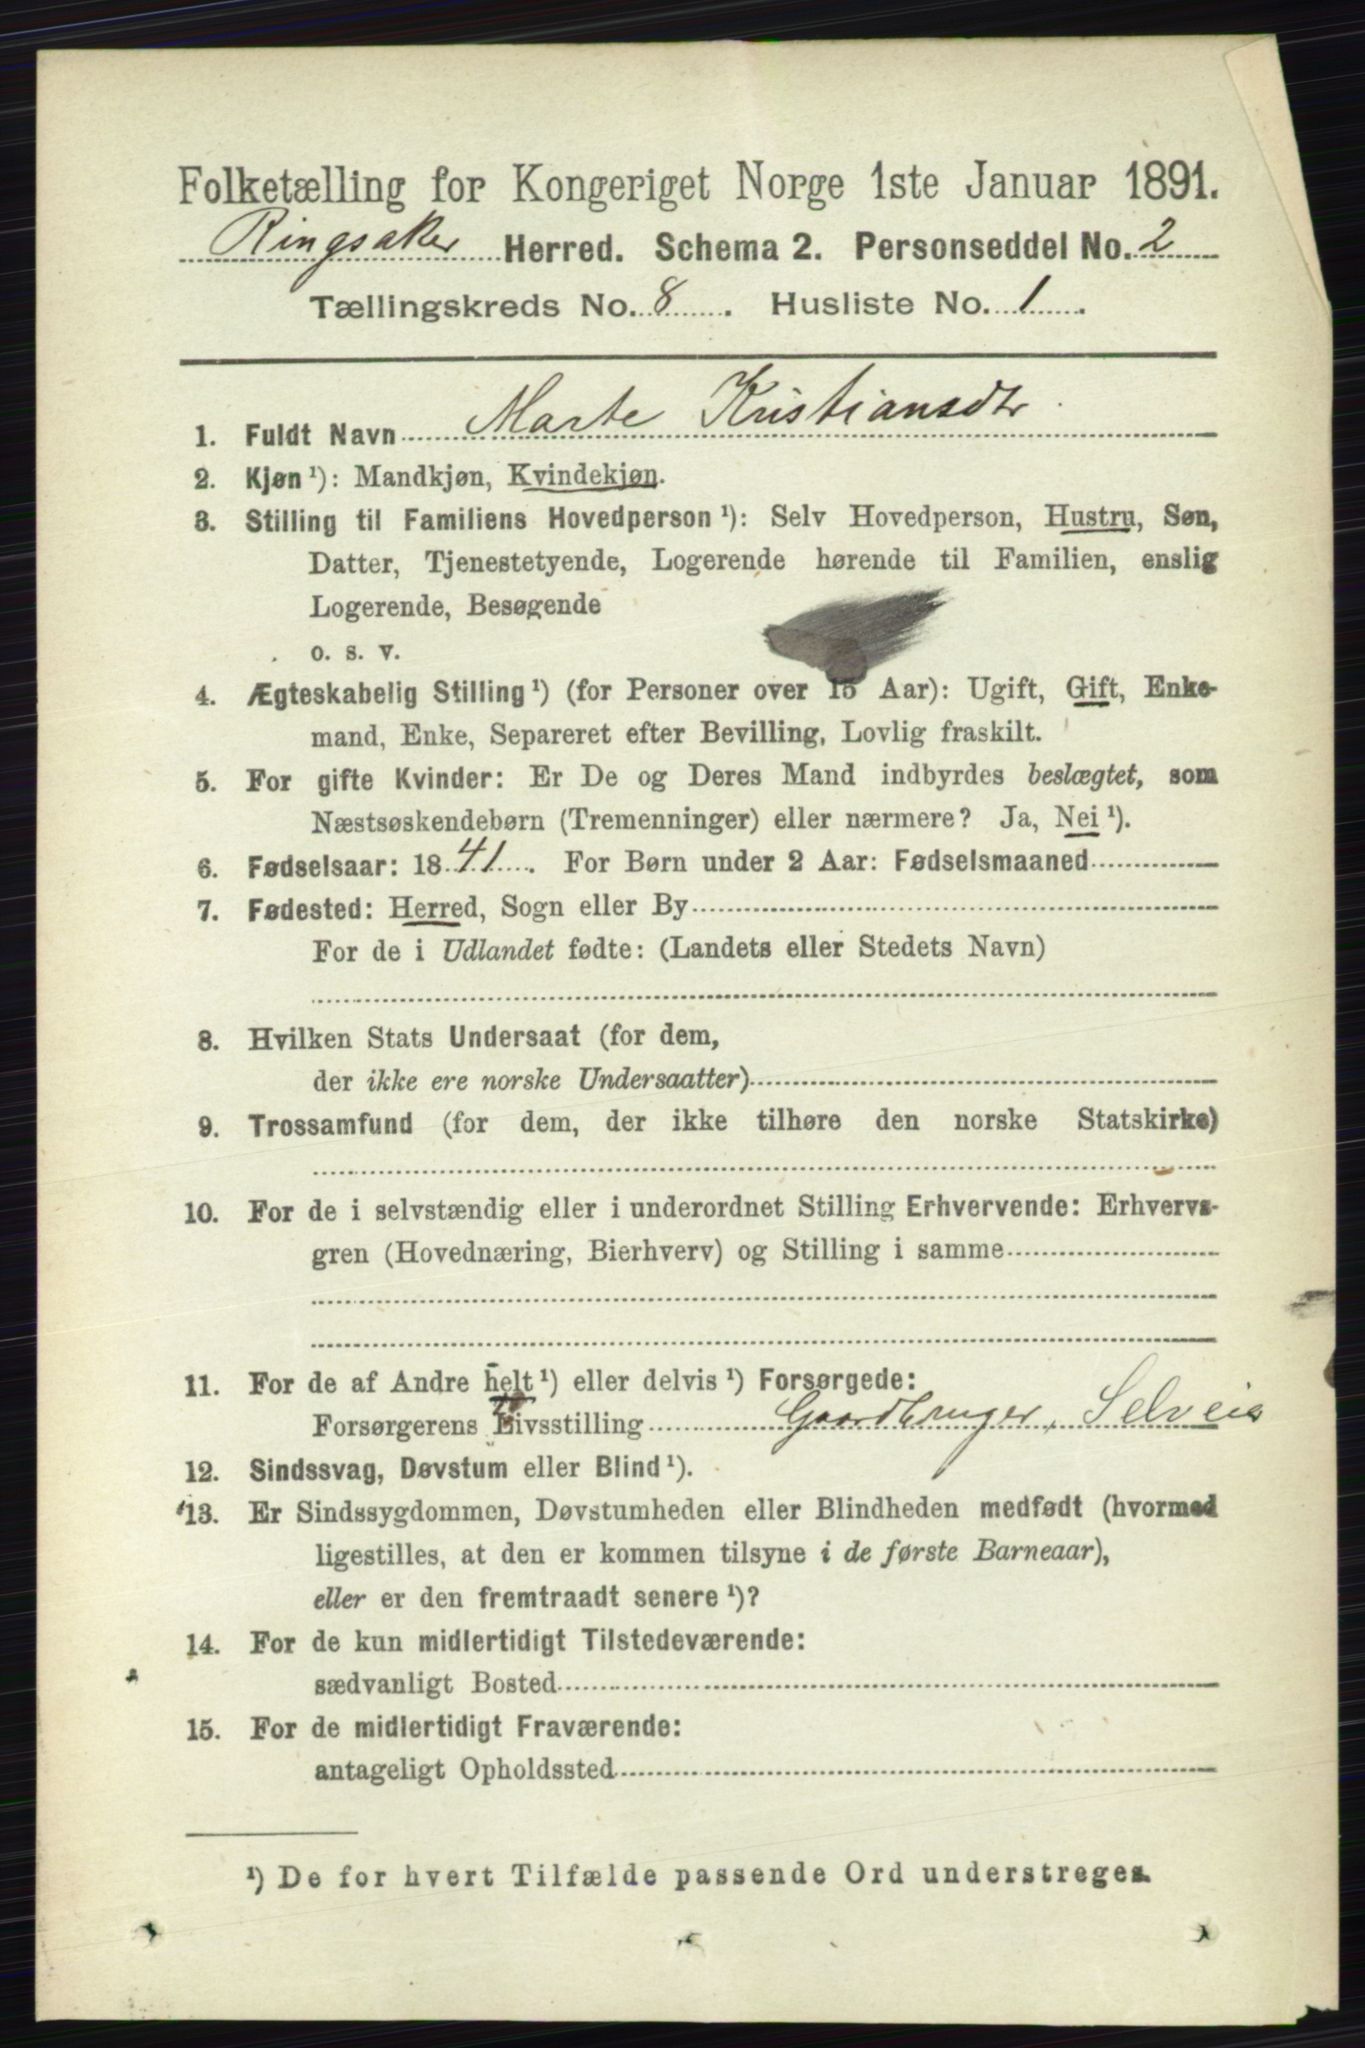 Folketælling for Kongeriget Norge 1ste Januar 1891.
Ringsaker Herred. Schema 2. Personseddel No. 2
Tællingskreds No. 8. Husliste No. 1.
1. Fuldt Navn Marte Kristiansdtr.
2. Kjøn ¹): Mandkjøn, Kvindekjøn.
3. Stilling til Familiens Hovedperson ¹): Selv Hovedperson, Hustru, Søn,
Datter, Tjenestetyende, Logerende hørende til Familien, enslig
Logerende, Besøgende
o. s. v.
4. Ægteskabelig Stilling ¹) (for Personer over 15 Aar): Ugift, Gift, Enke-
mand, Enke, Separeret efter Bevilling, Lovlig fraskilt.
5. For gifte Kvinder: Er De og Deres Mand indbyrdes beslægtet, som
Næstsøskendebørn (Tremenninger) eller nærmere? Ja, Nei ¹).
6. Fødselsaar: 1841. For Børn under 2 Aar: Fødselsmaaned
7. Fødested: Herred, Sogn eller By
For de i Udlandet fødte: (Landets eller Stedets Navn)
8. Hvilken Stats Undersaat (for dem,
der ikke ere norske Undersaatter)
9. Trossamfund (for dem, der ikke tilhøre den norske Statskirke)
10. For de i selvstændig eller i underordnet Stilling Erhvervende: Erhvervs-
gren (Hovednæring, Bierhverv) og Stilling i samme
11. For de af Andre helt ¹) eller delvis ¹) Forsørgede:
Forsørgerens Livsstilling Gaardbruger, Selveis
12. Sindssvag, Døvstum eller Blind ¹).
13. Er Sindssygdommen, Døvstumheden eller Blindheden medfødt (hvormed
ligestilles, at den er kommen tilsyne i de første Barneaar),
eller er den fremtraadt senere ¹)?
14. For de kun midlertidigt Tilstedeværende:
sædvanligt Bosted
15. For de midlertidigt Fraværende:
antageligt Opholdssted
¹) De for hvert Tilfælde passende Ord understreges.